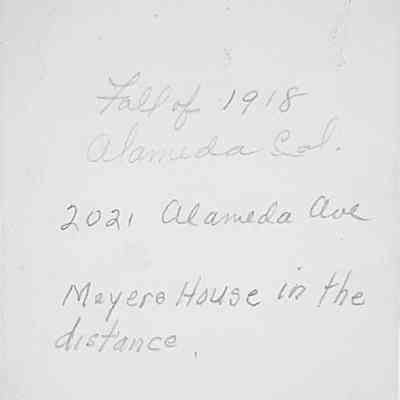 Fall of 1918
Alameda Cal.
2021 Alameda Ave
Meyers House in the
distance.